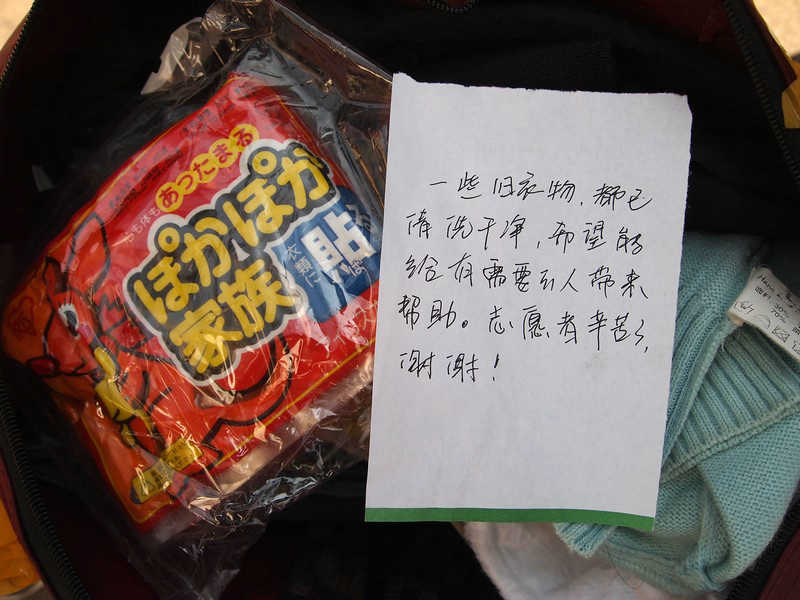 心も体もあったまる
ぽかぽか
家族
衣類に
貼
一些旧衣物，都已
清洗干净，希望能
给有需要的人带来
帮助。志愿者辛苦了，
谢谢！
30%
70%